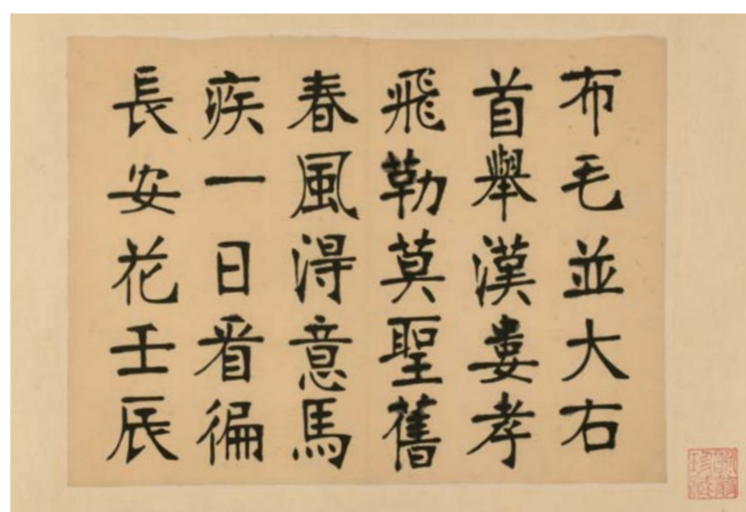 布毛並大右
首舉漢婁孝
飛勒莫聖舊
春風淂意馬
疾一日看徧
長安花壬辰